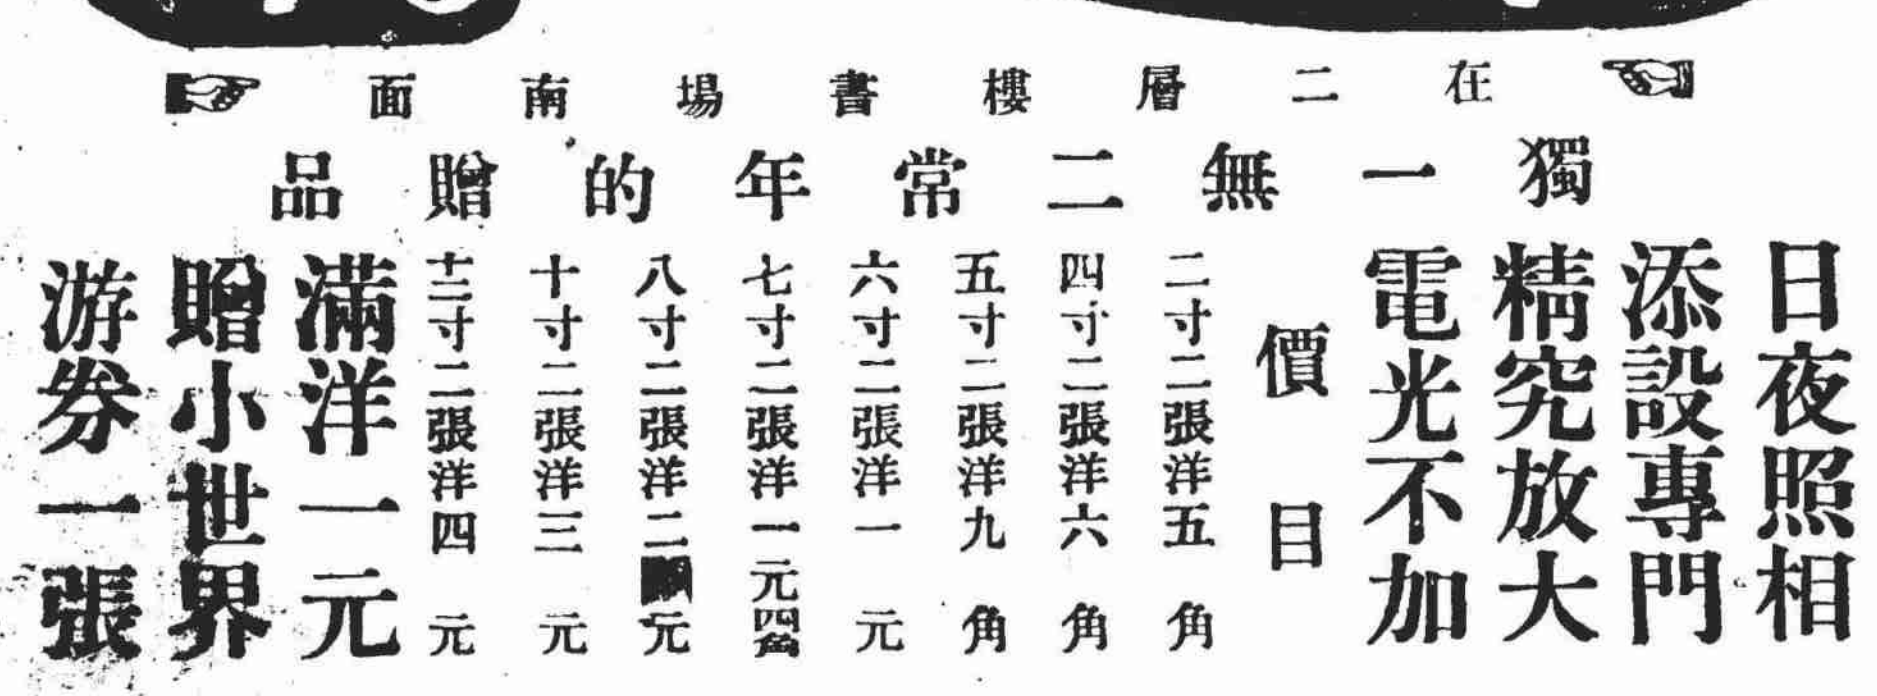 在二層樓書場南面
獨一無二常年的贈品
日夜照相
添設專門
精究放大
電光不加
價目
二寸二張洋五角
四寸二張洋六角
五寸二張洋九角
六寸二張洋一元
七寸二張洋一元四角
八寸二張洋二元
十寸二張洋三元
十二寸二張洋四元
滿洋一元
贈小世界
游券一張